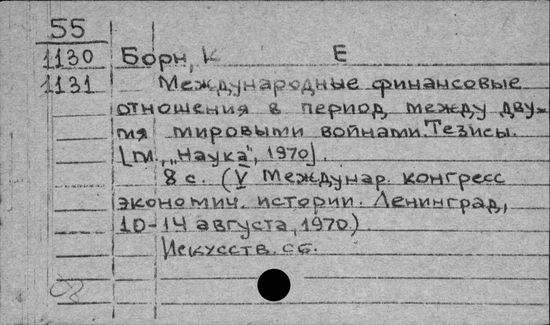 55
1130 Борн, К Е
1131 Международные финансовые
отношения в период между дву-
мя мировыми войнами. Тезисы.
[М., „Наука", 1970].
8 с. (V Междунар. конгресс
экономич. истории. Ленинград,
10-14 августа, 1970.)
Искусств. сб.